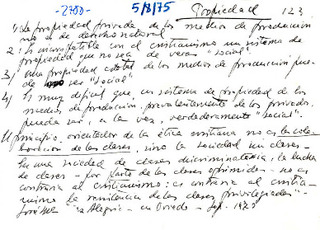 -2700- 5/8/75 Propiedad 123
1) La propiedad privada de los medios de producción
no es de derecho natural
2) Es incompatible con el cristianismo un sistema de
propiedad que no sea de veras "social".
3) Una propiedad estatal de los medios de producción pue-
de ser "social".
4) Es muy difícil que, un sistema de propiedad de los
medios de producción, prevalentemente de los privados,
pueda ser, a la vez, verdaderamente "social".
El principio orientador de la ética cristiana no es la cola-
boración de las clases, sino la sociedad sin clases -
En una sociedad de clases discriminatoria, la lucha
de clases - por parte de las clases oprimidas - no es
contraria al cristianismo: es contraria al cristia-
nismo la resistencia de las clases privilegiadas".
"Alegría" - en Oviedo - 1975